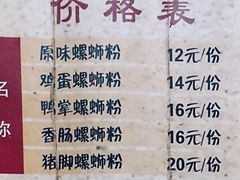 价格表
原味螺蛳粉 12元/份
鸡蛋螺蛳粉 14元/份
名
鸭掌螺蛳粉 16元/份
称
香肠螺蛳粉 16元/份
猪脚螺蛳粉 20元/份